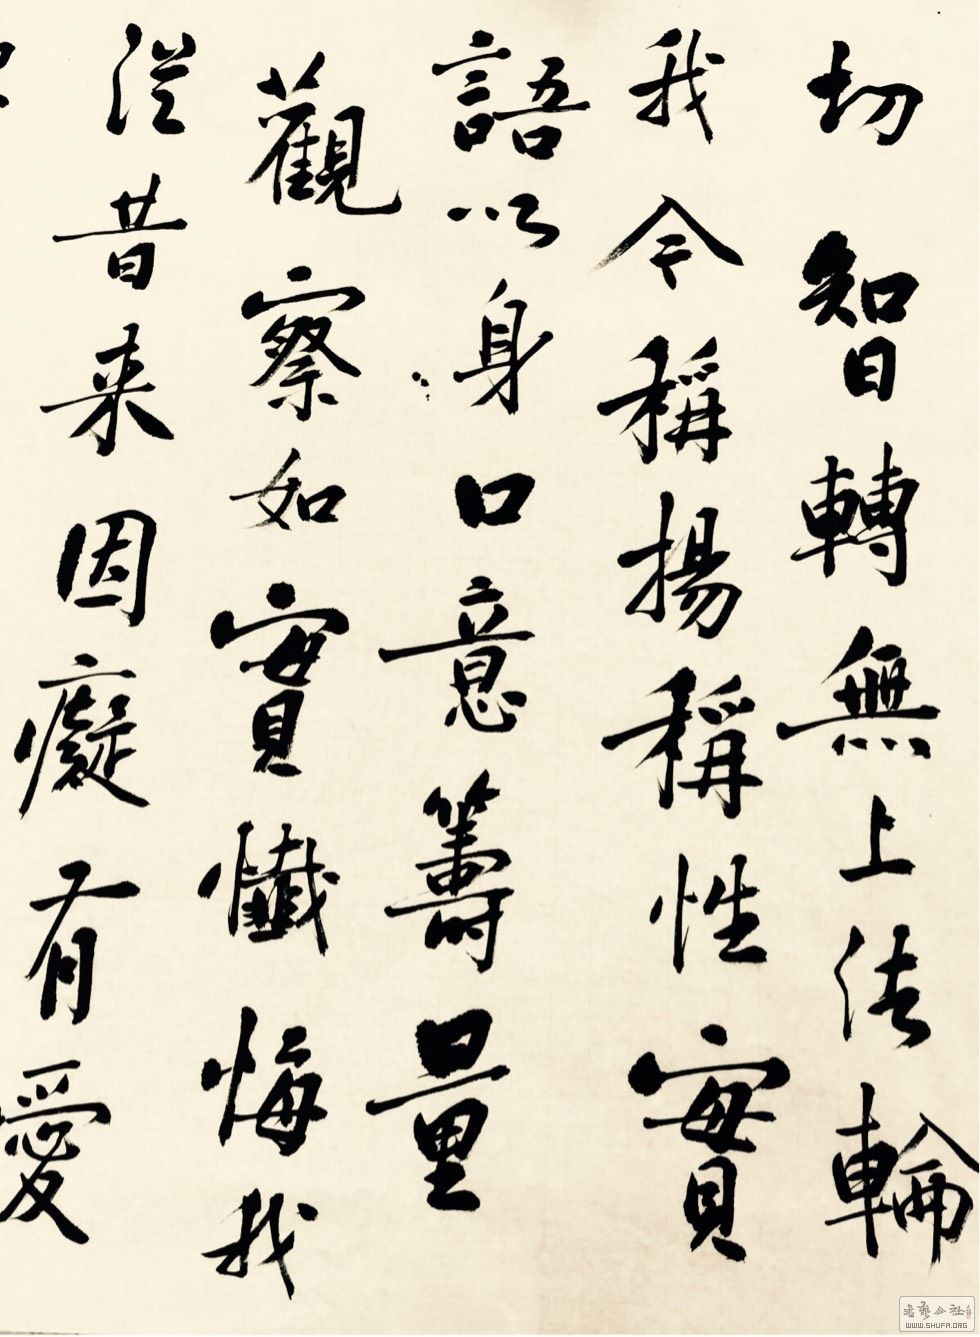 切智轉無上法輪
我今稱揚稱性實
語以身口意籌量
觀察如實懺悔我
從昔来因癡有愛
WWW.SHUFA.ORG